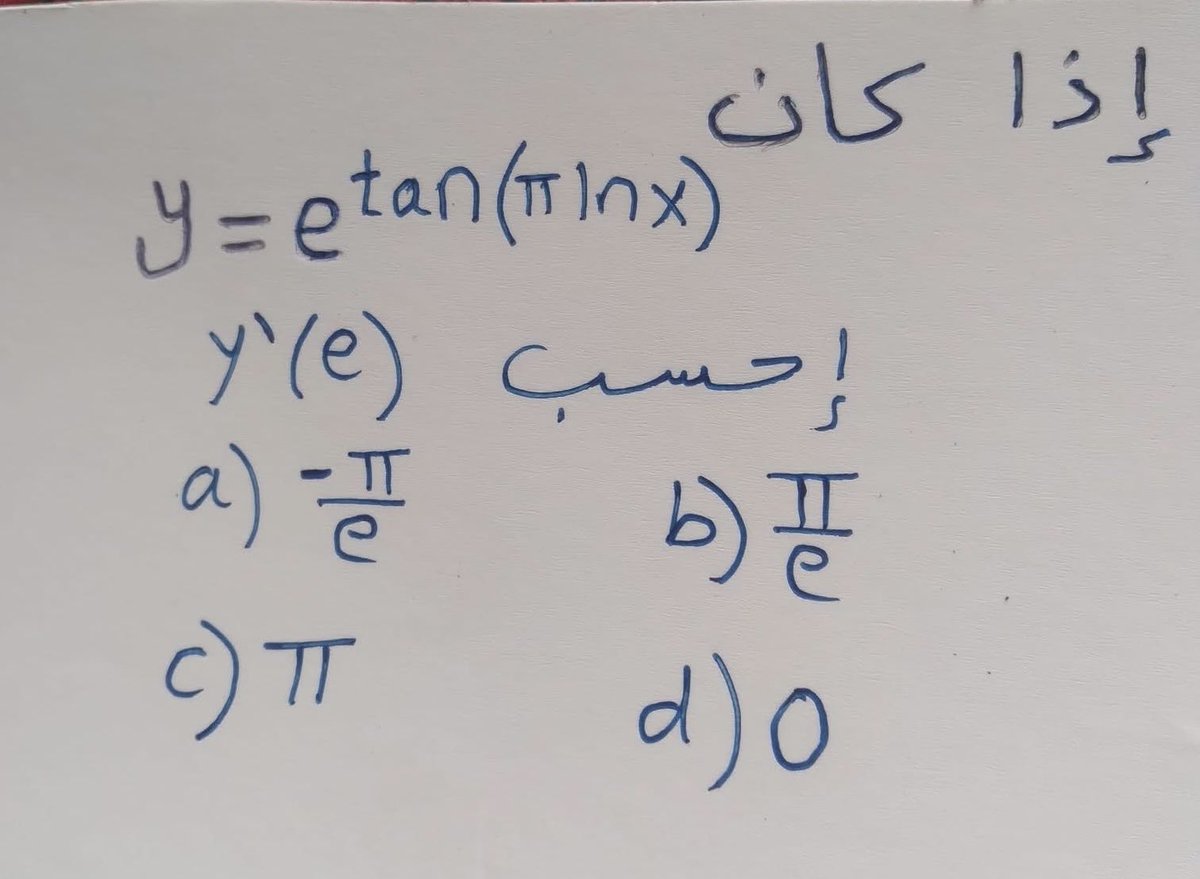 إذا كان
y = e^tan(π ln x)
إحسب y`(e)
a) -π/e b) π/e
c) π d) 0